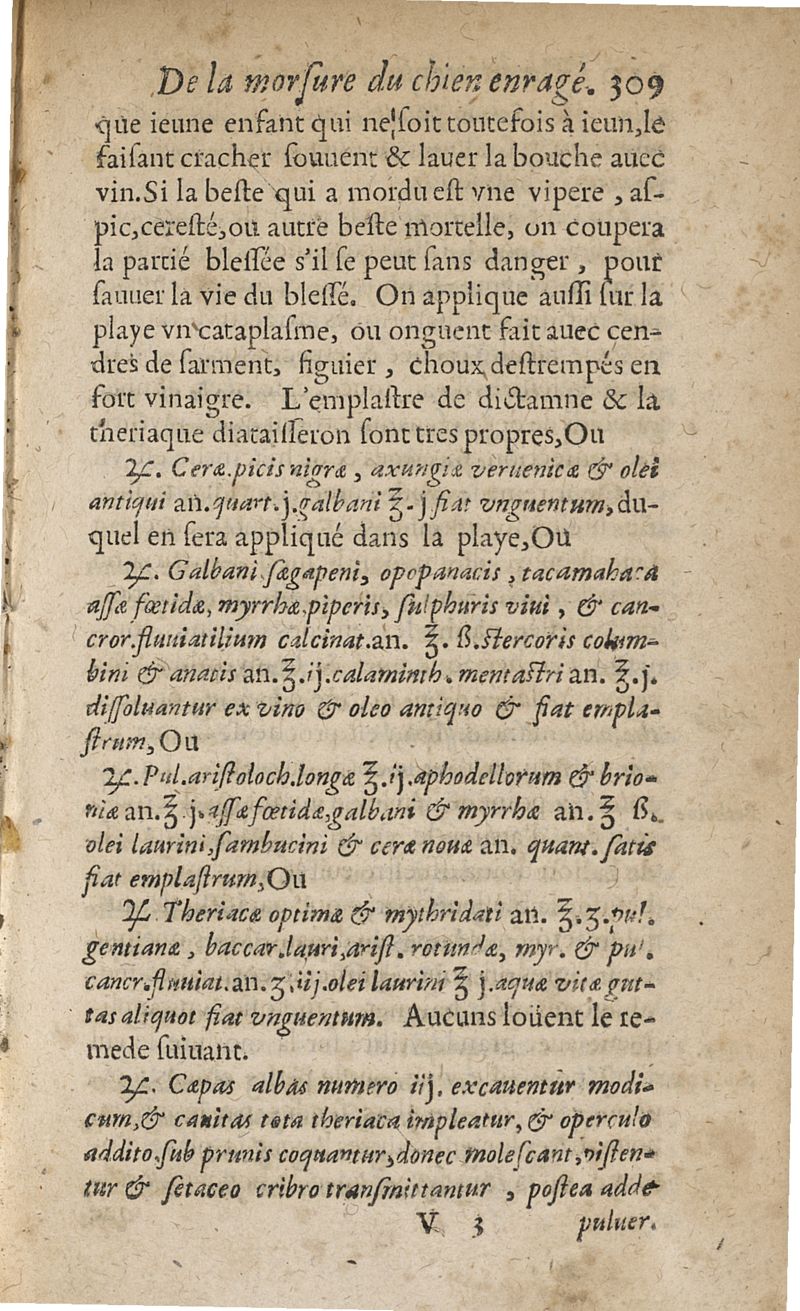 De la morſure du chien enragé. 309
que ieune enfant qui ne ſoit toutefois à ieun, le
faiſant cracher ſouuent & lauer la bouche auec
vin. Si la beſte qui a mordu eſt vne vipere, aſ-
pic, cereſté, ou autre beſte mortelle, on coupera
la partié bleſſée s'il ſe peut ſans danger, pour
ſauuer la vie du bleſſé. On applique auſſi ſur la
playe vn cataplaſme, ou onguent fait auec cen-
dres de ſarment, figuier, choux deſtrempés en
fort vinaigre. L'emplaſtre de dictamne & la
theriaque diataiſſeron ſont tres propres, Ou
℞. Ceræ. picis nigræ, axungiæ veruenicæ & olei
antiqui an. quart. j. galbani ℥. j fiat vnguentum, du-
quel en ſera appliqué dans la playe, Ou
℞. Galbani ſagapeni, opopanacis, tacamahaca
aſſæ fœtidæ, myrrhæ, piperis, ſulphuris viui, & can-
cror. fluuiatilium calcinat. an. ℥. ß. ſtercoris colum-
bini & anatis an. ℥. ij. calaminth. mentaſtri an. ℥. j.
diſſoluantur ex vino & oleo antiquo & fiat empla-
ſtrum, Ou
℞. Pul. ariſtoloch. longæ ℥. ij. aphodellorum & brio-
niæ an. ℥ j. aſſæ fœtidæ, galbani & myrrhæ an. ℥ ß.
olei laurini, ſambucini & ceræ nouæ an. quant. ſatis
fiat emplaſtrum, Ou
℞ Theriacæ optimæ & mythridati an. ℥. ʒ. pul.
gentianæ, baccar. lauri, ariſt. rotundæ, myr. & pul.
cancr. fluuiat. an. ʒ. iij. olei laurini ℥ j. aquæ vitæ gut-
tas aliquot fiat vnguentum. Aucuns loüent le re-
mede ſuiuant.
℞. Cæpas albas numero iij. excauentur modi-
cum, & cauitas tota theriaca impleatur, & operculo
addito, ſub prunis coquantur, donec moleſcant, piſten-
tur & ſetaceo cribro tranſmittantur, poſtea adde
V 3 puluer.